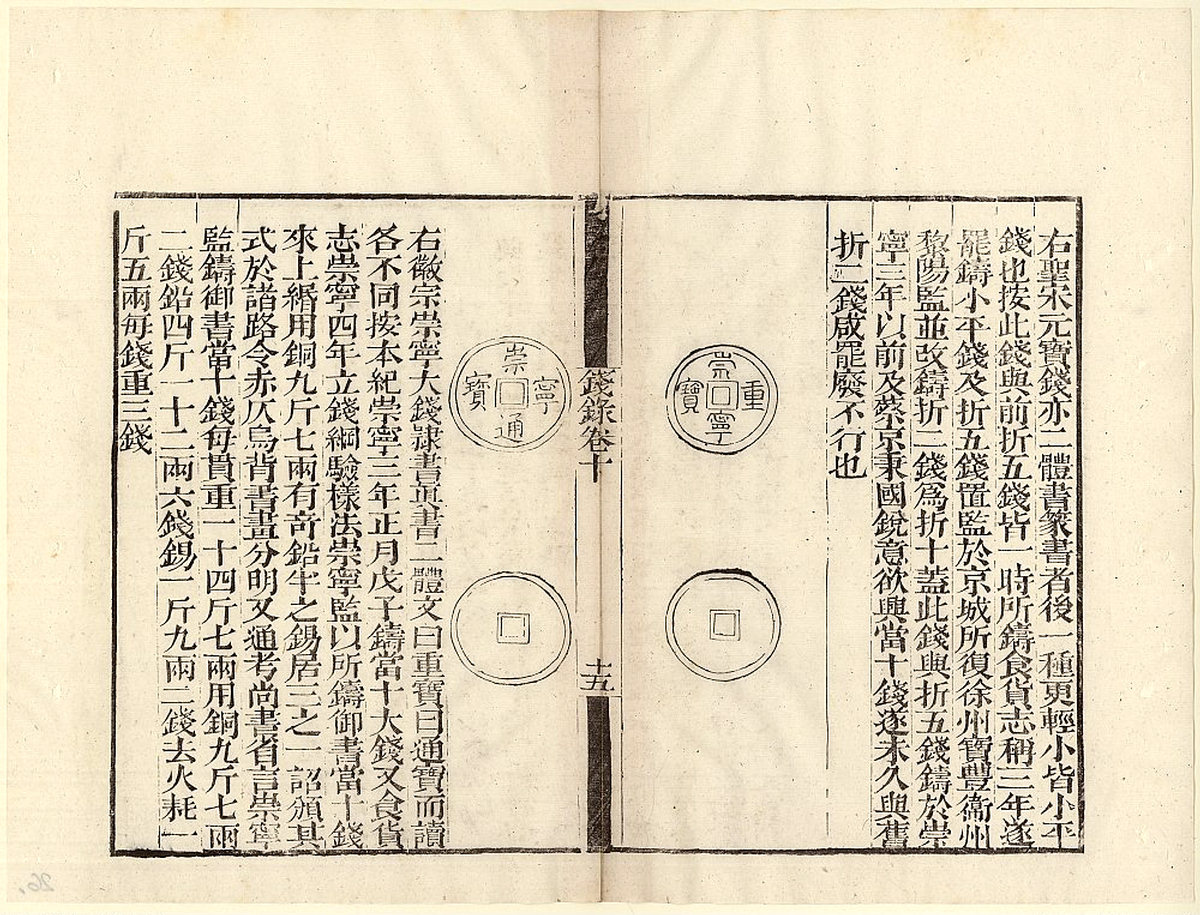 右聖宋元寶錢亦二體書篆書者後一種更輕小皆小平
錢也按此錢與前折五錢皆一時所鑄食貨志稱三年遂
罷鑄小平錢及折五錢置監於京城所復徐州寶豐衞州
黎陽監並改鑄折二錢爲折十蓋此錢與折五錢鑄於崇
寧三年以前及蔡京秉國銳意欲興當十錢遂未久與舊
折二錢咸罷廢不行也
崇寧重寶
錢錄卷十
十五
崇寧通寶
右徽宗崇寧大錢隷書眞書二體文曰重寶曰通寶而讀
各不同按本紀崇寧三年正月戊子鑄當十大錢又食貨
志崇寧四年立錢綱驗樣法崇寧監以所鑄御書當十錢
來上緡用銅九斤七兩有奇鉛半之錫居三之一詔頒其
式於諸路令赤仄烏背書畫分明又通考尚書省言崇寧
監鑄御書當十錢每貫重一十四斤七兩用銅九斤七兩
二錢鉛四斤一十二兩六錢錫一斤九兩二錢去火耗一
斤五兩每錢重三錢
26.